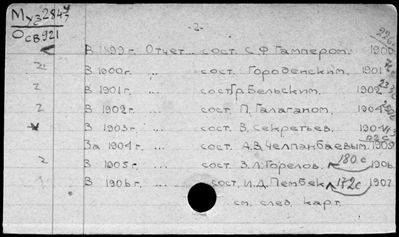 Муз2844
Осв921
-2-
В 1899г. Отчет... сост. С.Ф. Гампером. 1900
2 В 1900г. ,, сост. Городенским, 1901
2 В 1901г. ,, сост. Гр. Бельским. 1902
2 В 1902г. ,, сост. П. Галаганом, 1904
В 1903г. ,, сост. В. Секретьев. 1904
За 1904г. ... сост. А.В. Челпанбаевым. 1909
2 В 1905г. ,, сост. З.Л. Горелов. 180с 1906
В 1906г. ,, сост. И.Д. Пембек 172с 1907
см. след. карт.